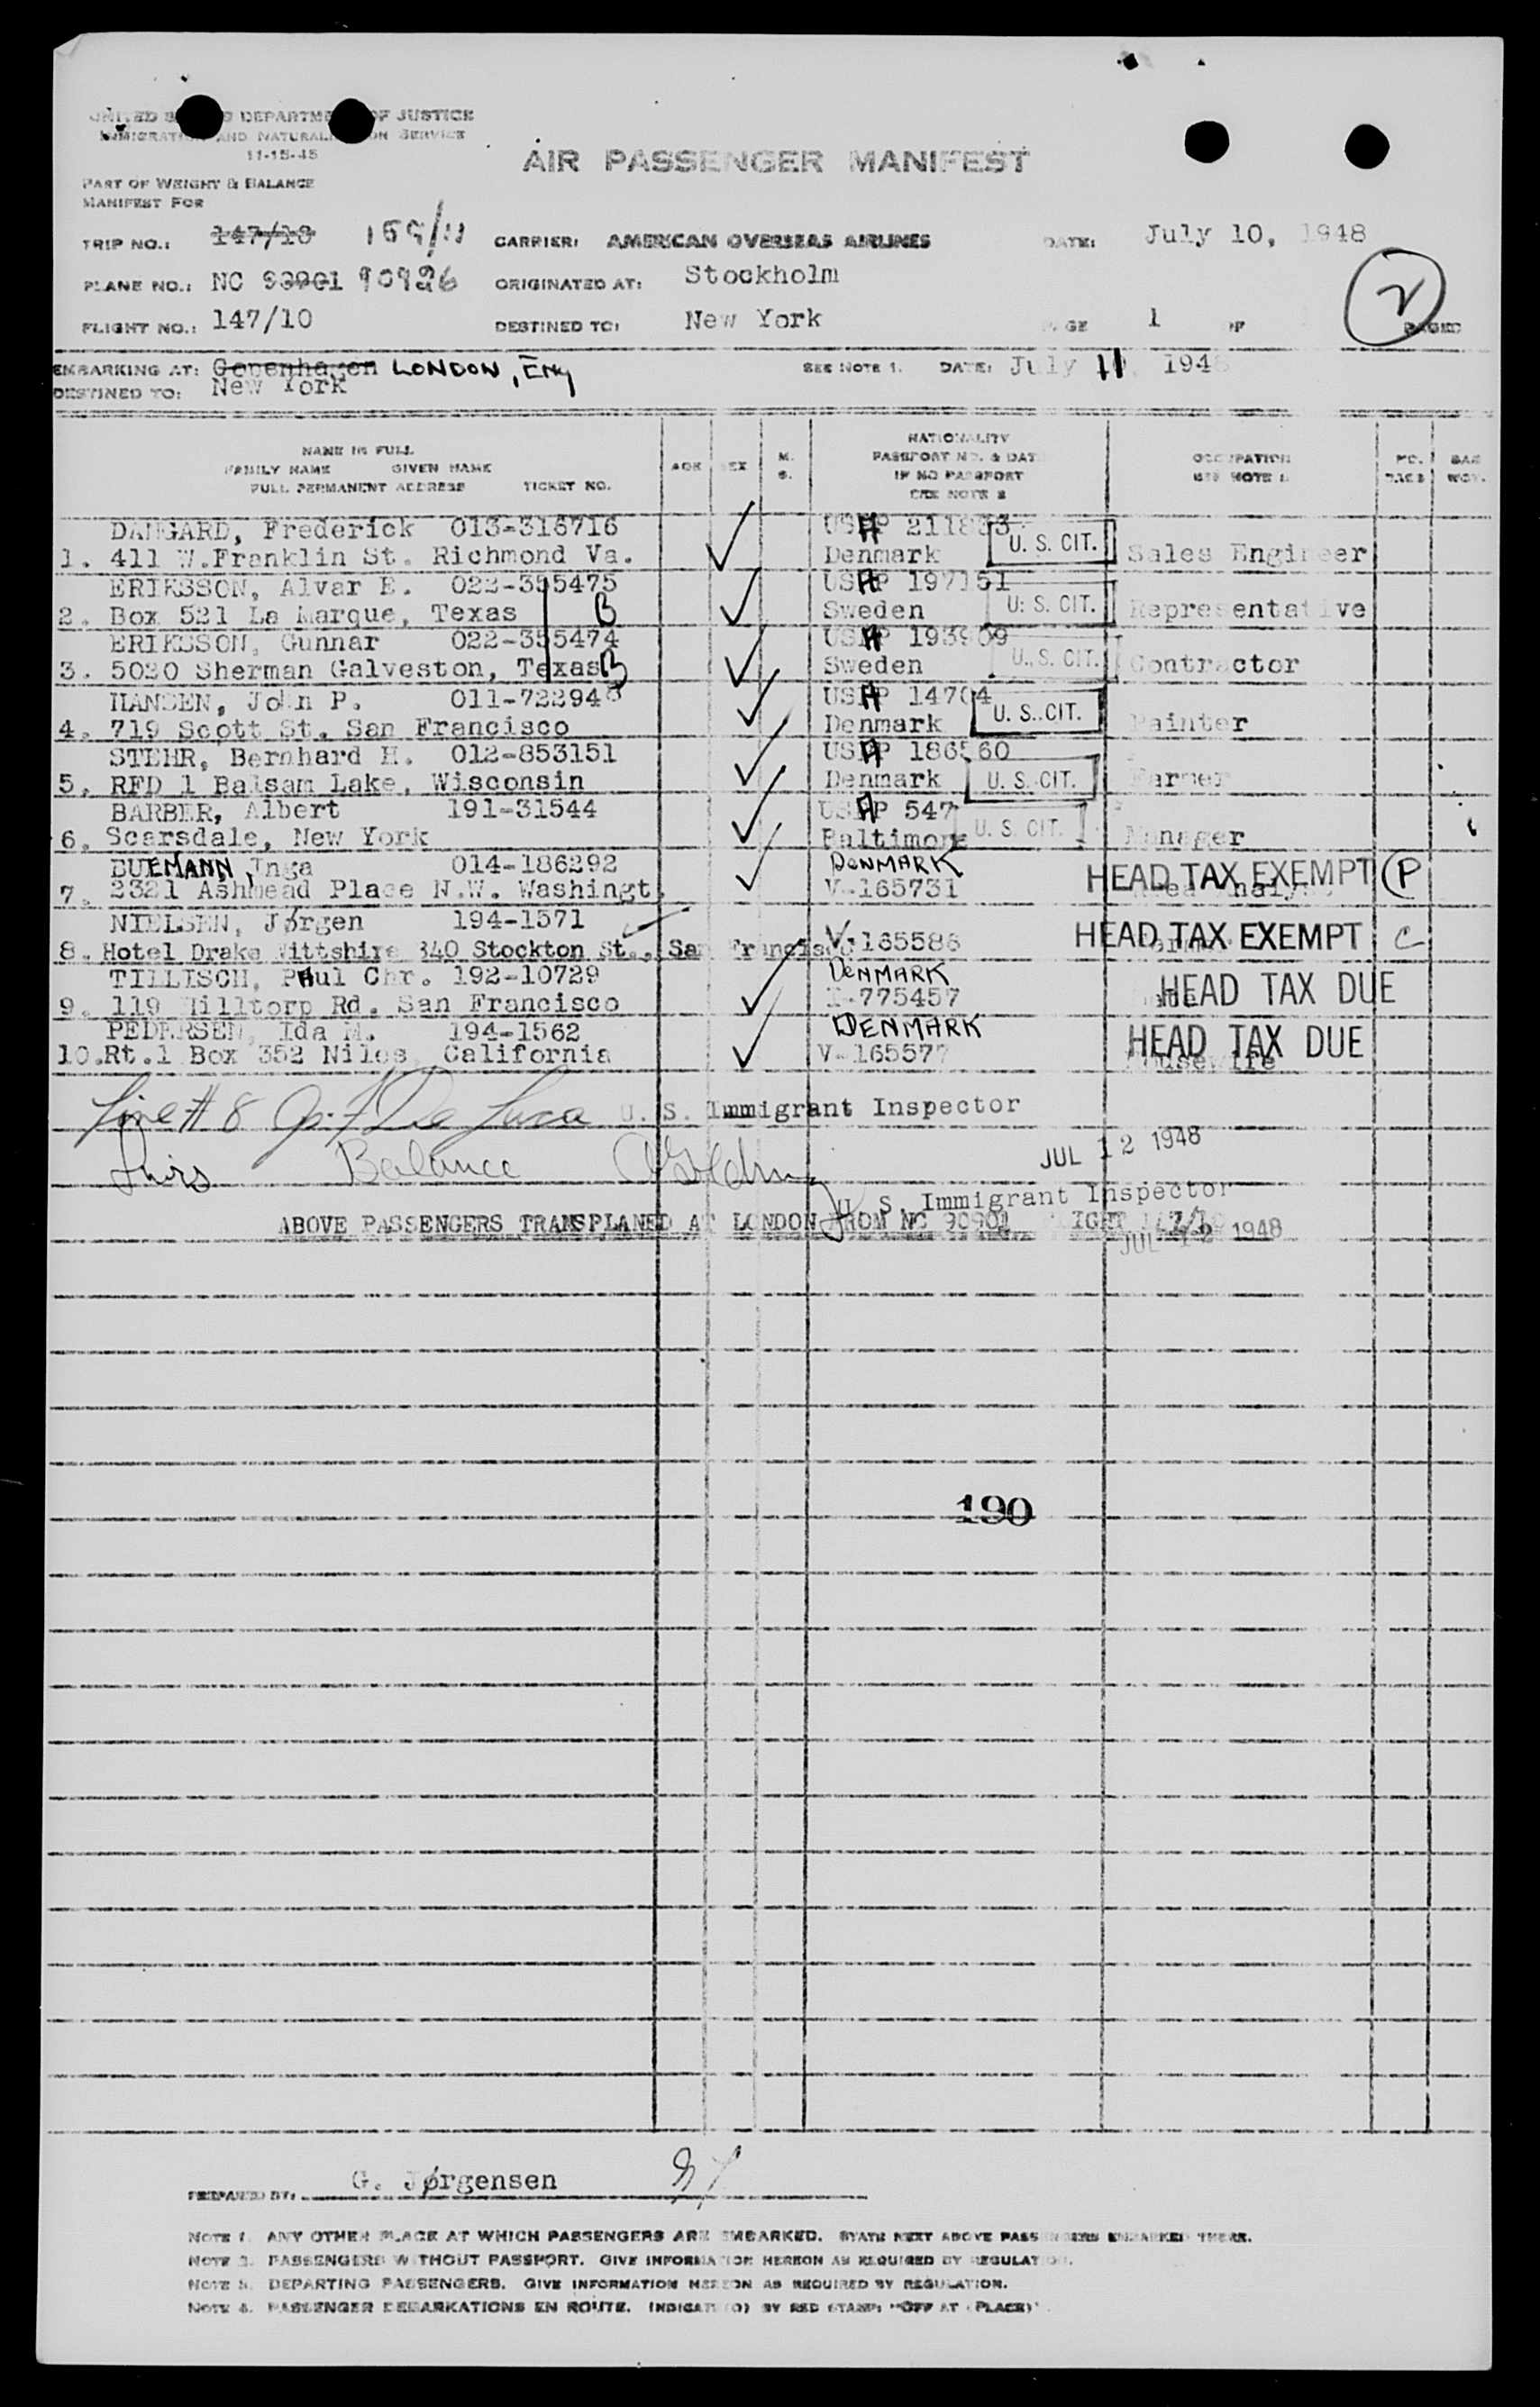 UNITED DEPARTMENT OF JUSTICE
IMMIGRATION AND NATURALIZATION SERVICE
11-15-45
AIR PASSENGER MANIFEST
PART OF WEIGHT & BALANCE
MANIFEST FOR
TRIP NO.: 147/10 159/11 CARRIER: AMERICAN OVERSEAS AIRLINES DATE: July 10, 1948
PLANE NO.: NC 90901 90926 ORIGINATED AT: Stockholm
FLIGHT NO.: 147/10 DESTINED TO: New York PAGE 1 OF 2 PAGES
EMBARKING AT: Copenhagen LONDON, Eng SEE NOTE 1. DATE: July 11, 1948
DESTINED TO: New York
NAME IN FULL
FAMILY NAME GIVEN NAME
FULL PERMANENT ADDRESS TICKET NO.
AGE SEX M. S.
NATIONALITY
PASSPORT NO. & DATE
IF NO PASSPORT
SEE NOTE 2
OCCUPATION
SEE NOTE
PC. BAGS
BAG WGT.
DAMGARD, Frederick 013-316716 USAP 211833
1. 411 W.Franklin St. Richmond Va. Denmark U. S. CIT. Sales Engineer
ERIKSSON, Alvar E. 022-355475 USAP 197151
2. Box 521 La Marque, Texas B Sweden U. S. CIT. Representative
ERIKSSON, Gunnar 022-355474 USAP 193909
3. 5020 Sherman Galveston, Texas B Sweden U. S. CIT. Contractor
HANSEN, John P. 011-722948 USAP 14704
4. 719 Scott St. San Francisco Denmark U. S. CIT. Painter
STEHR, Bernhard H. 012-853151 USAP 186560
5. RFD 1 Balsam Lake, Wisconsin Denmark U. S. CIT. Farmer
BARBER, Albert 191-31544 USAP 547
6. Scarsdale, New York Baltimore U. S. CIT. Manager
BUEMANN, Inga 014-186292 DENMARK HEAD TAX EXEMPT P
7. 2321 Ashmead Place N.W. Washingt. V-165731
NIELSEN, Jørgen 194-1571 V-165586 HEAD TAX EXEMPT C
8. Hotel Drake Wittshire 340 Stockton St., San Francisco
TILLISCH, Paul Chr. 192-10729 DENMARK HEAD TAX DUE
9. 119 Hilltorp Rd. San Francisco I-775457
PEDERSEN, Ida M. 194-1562 DENMARK HEAD TAX DUE
10. Rt.1 Box 352 Niles, California V-165577 Housewife
Line # 8 De Luca U. S. Immigrant Inspector
JUL 12 1948
Balance
U. S. Immigrant Inspector
ABOVE PASSENGERS TRANSPLANED AT LONDON FROM NC 90901 FLIGHT 147/10
JUL 12 1948
190
PREPARED BY: G. Jørgensen
NOTE 1. ANY OTHER PLACE AT WHICH PASSENGERS ARE EMBARKED. STATE NEXT ABOVE PASSENGERS EMBARKED THERE.
NOTE 2. PASSENGERS WITHOUT PASSPORT. GIVE INFORMATION HEREON AS REQUIRED BY REGULATION.
NOTE 3. DEPARTING PASSENGERS. GIVE INFORMATION HEREON AS REQUIRED BY REGULATION.
NOTE 4. PASSENGER DEBARKATIONS EN ROUTE. INDICATE(D) BY RED STAMP: "OFF AT (PLACE)".